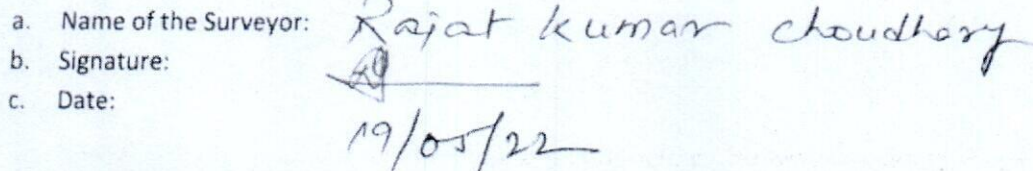 a. Name of the Surveyor: Rajat kumar choudhary
b. Signature:
c. Date: 19/05/22